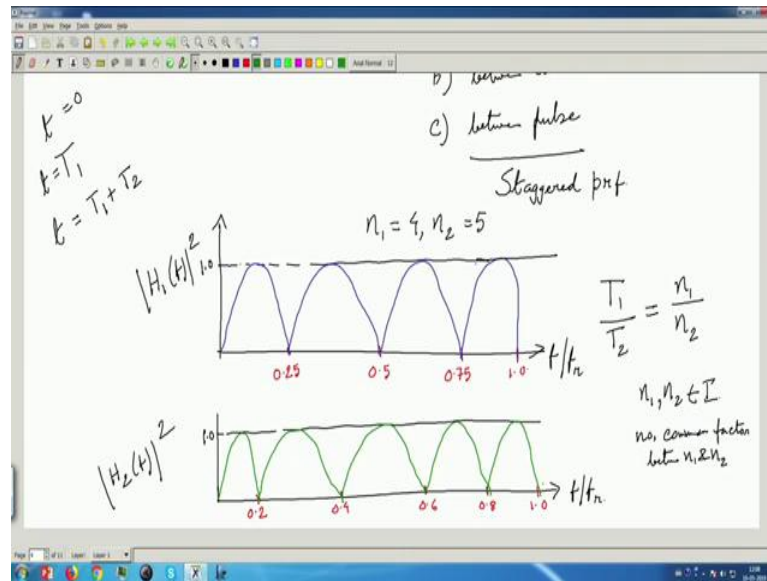 File Edit View Page Tools Options Help
Arial Normal 12
t = 0
t = T₁
t = T₁ + T₂
b) between
c) between pulse
Staggered prf.
n₁ = 4, n₂ = 5
|H₁(t)|²
1.0
0.25 0.5 0.75 1.0
t/tᵣ
T₁/T₂ = n₁/n₂
n₁, n₂ ∈ I
no. common factor
betwn n₁ & n₂
|H₂(t)|²
1.0
0.2 0.4 0.6 0.8 1.0
t/tᵣ
Layer 1